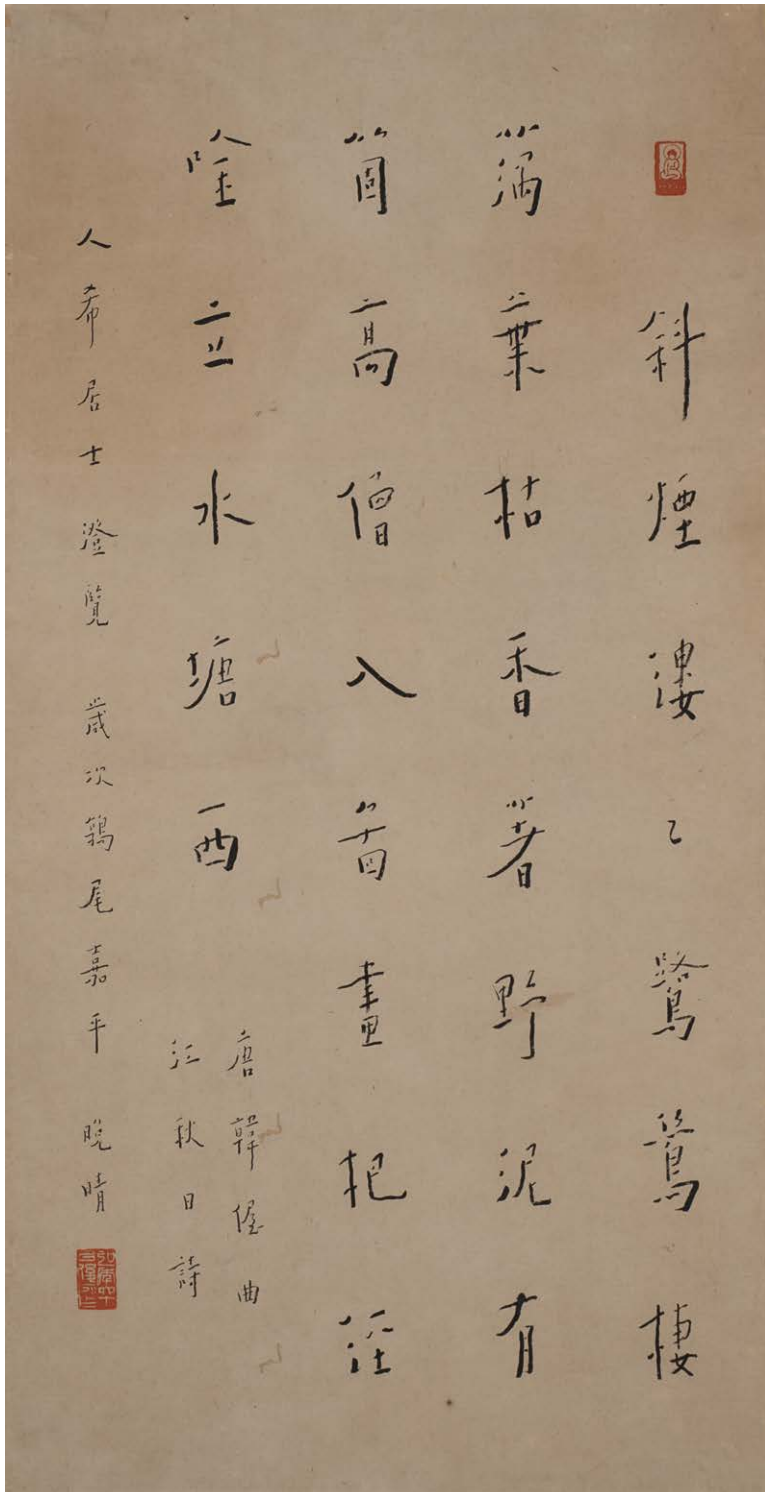 斜煙縷〻鷺鶿棲
藕葉枯香著野泥有
箇高僧入圖畫把經
唫立水塘西
唐韓偓曲
江秋日詩
人希居士澄覽 歲次鶉尾嘉平 晚晴